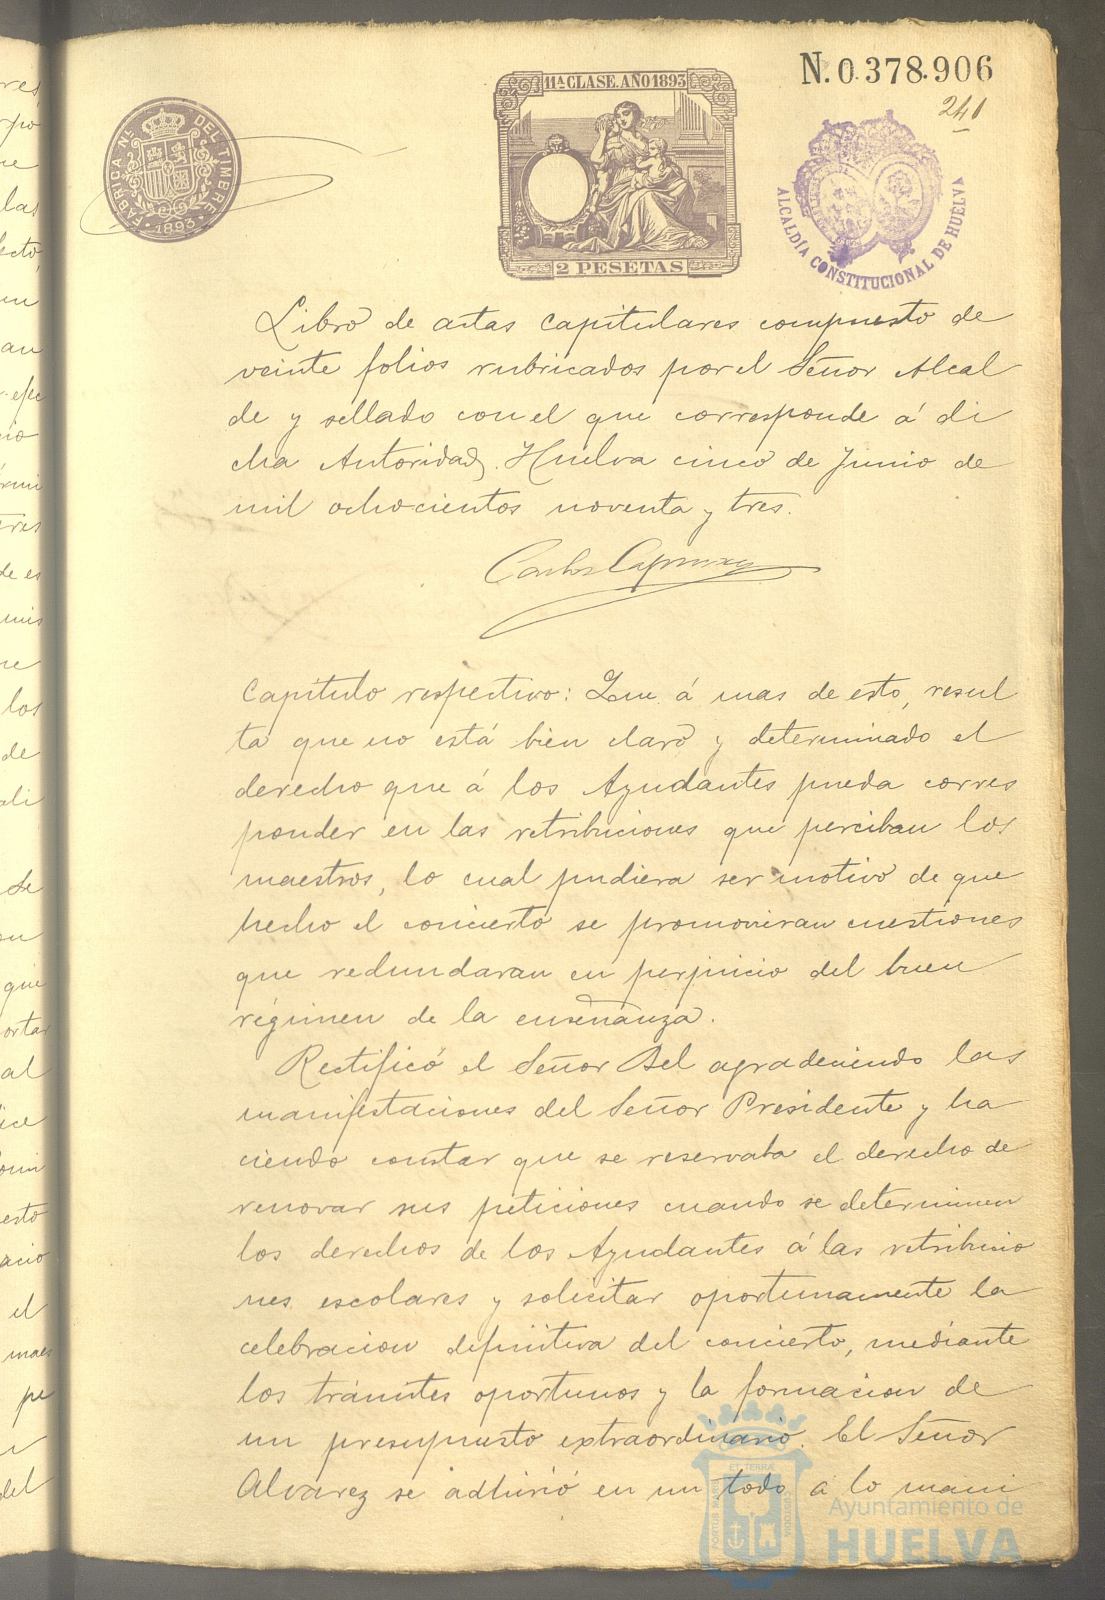 N. 0.378.906
241
11ª CLASE. AÑO 1893
2 PESETAS
FÁBRICA NL. DEL TIMBRE
1893
ALCALDÍA CONSTITUCIONAL DE HUELVA
Libro de actas capitulares compuesto de
veinte folios rubricados por el Señor Alcal
de y sellado con el que corresponde á di
cha Autoridad. Huelva cinco de Junio de
mil ochocientos noventa y tres.
Carlos
capítulo respectivo: Que á mas de esto, resul
ta que no está bien claro y determinado el
derecho que á los Ayudantes pueda corres
ponder en las retribuciones que perciban los
maestros, lo cual pudiera ser motivo de que
hecho el concierto se promovieran cuestiones
que redundaran en perjuicio del buen
régimen de la enseñanza.
Rectificó el Señor Bel agradeciendo las
manifestaciones del Señor Presidente y ha
ciendo constar que se reservaba el derecho de
renovar sus peticiones cuando se determinen
los derechos de los Ayudantes á las retribucio
nes escolares y solicitar oportunamente la
celebracion definitiva del concierto, mediante
los trámites oportunos y la formacion de
un presupuesto extraordinario. El Señor
Alvarez se adhirió en un todo á lo mani
Ayuntamiento de
HUELVA